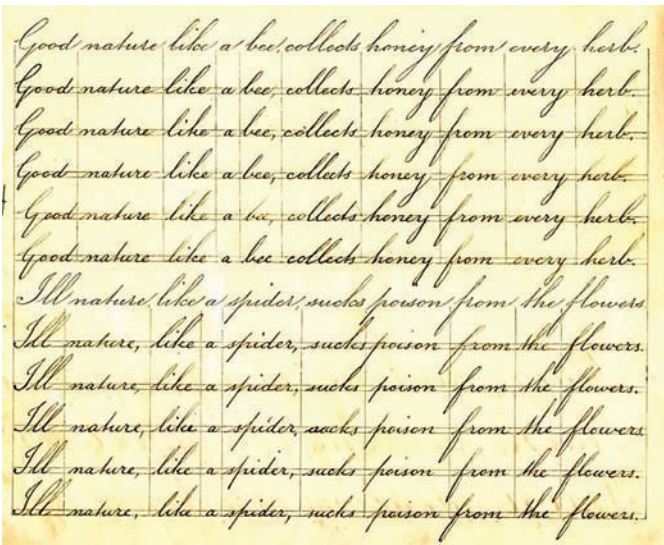 Good nature like a bee, collects honey from every herb.
Good nature like a bee, collects honey from every herb.
Good nature like a bee, collects honey from every herb.
Good nature like a bee, collects honey from every herb.
Good nature like a bee, collects honey from every herb.
Good nature like a bee collects honey from every herb.
Ill nature, like a spider, sucks poison from the flowers
Ill nature, like a spider, sucks poison from the flowers.
Ill nature, like a spider, sucks poison from the flowers.
Ill nature, like a spider, sucks poison from the flowers
Ill nature, like a spider, sucks poison from the flowers.
Ill nature, like a spider, sucks poison from the flowers.